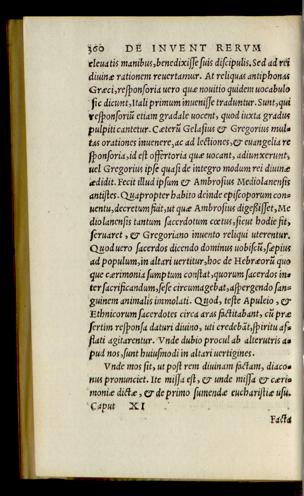 360 DE INVENT RERVM
eleuatis manibus, benedixisse suis discipulis. Sed ad rei
diuinæ rationem reuertamur. At reliquas antiphonas
Græci, responsoria uero quæ nouitio quidem uocabulo
sic dicunt, Itali primum inuenisse traduntur. Sunt, qui
responsoriũ etiam gradale uocent, quod iuxta gradus
pulpiti cantetur. Cæterũ Gelasius & Gregorius mul⸗
tas orationes inuenere, ac ad lectiones, & euangelia re
sponsoria, id est offertoria quæ uocant, adiunxerunt,
uel Gregorius ipse quasi de integro modum rei diuinæ
ædidit. Fecit illud ipsum & Ambrosius Mediolanensis
antistes. Quapropter habito deinde episcoporum con⸗
uentu, decretum fuit, ut quæ Ambrosius digessisset, Me
diolanensis tantum sacerdotum cœtus, sicut hodie fit,
seruaret, & Gregoriano inuento reliqui uterentur.
Quod uero sacerdos dicendo dominus uobiscũ, sæpius
ad populum, in altari uertitur, hoc de Hebræorũ quo
que cærimonia sumptum constat, quorum sacerdos in⸗
ter sacrificandum, sese circumagebat, aspergendo san⸗
guinem animalis immolati. Quod, teste Apuleio, &
Ethnicorum sacerdotes circa aras factitabant, cũ præ
sertim responsa daturi diuino, uti credebãt, spiritu af⸗
flati agitarentur. Vnde dubio procul ab alterutris a⸗
pud nos, sunt huiusmodi in altari uertigines.
Vnde mos sit, ut post rem diuinam factam, diaco⸗
nus pronunciet. Ite missa est, & unde missa & cæri⸗
moniæ dictæ, & de primo sumendæ eucharistiæ usu.
Caput XI
Facta